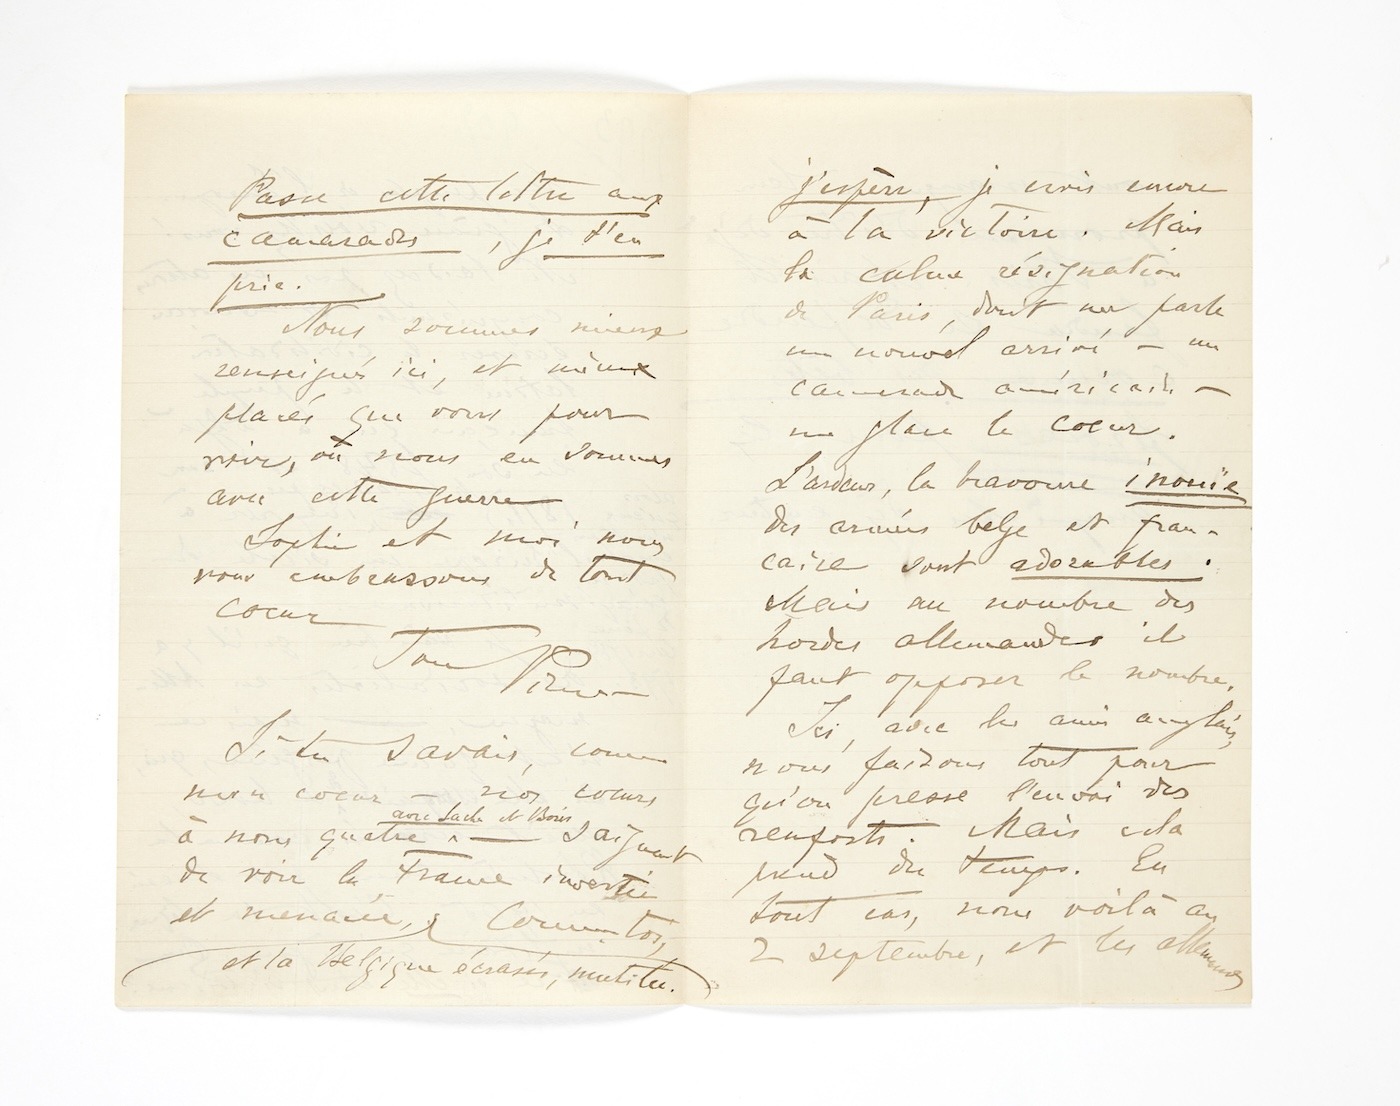 Passe cette lettre aux
camarades, je t'en
prie.
Nous sommes mieux
renseignés ici, et mieux
placés que vous pour
voir, où nous en sommes
avec cette guerre
Sophie et moi nous
vous embrassons de tout
coeur
Ton Pierre
Si tu savais, comme
mon coeur – nos coeurs
avec Sacha et Boris
à nous quatre ^ — saignent
de voir la France investie
et menacée, Comme toi,
et la Belgique écrasée, mutilée.
j'espère, je crois encore
à la victoire. Mais
la calme résignation
de Paris, dont me parle
un nouvel arrivé – un
camarade américain –
me glace le coeur.
L'ardeur, la bravoure inouïe
des armées belge et fran-
çaise sont adorables.
Mais au nombre des
hordes allemandes il
faut opposer le nombre.
Ici, avec les amis anglais,
nous faisons tout pour
qu'on presse l'envoi des
renforts. Mais cela
prend du temps. En
tout cas, nous voilà au
2 septembre, et les allemands